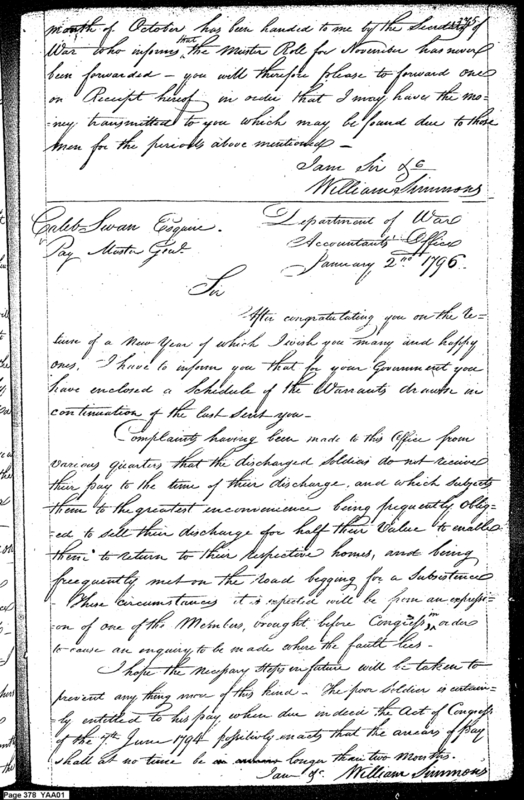 375
month of October has been handed to me by the Secretary of
War who informs that the Muster Roll for November has never
been forwarded – you will therefore please to forward one
on Receipt hereof in order that I may have the mo-
ney transmitted to you which may be found due to those
men for the periods above mentioned –
I am Sir &c
William Simmons
Caleb Swan Esquire.
Pay Master Genl.
Department of War
Accountants Office
January 2nd 1796.
Sir
After congratulating you on the re-
turn of a New Year of which I wish you many and happy
ones, I have to inform you that for your Government you
have enclosed a Schedule of the Warrants drawn in
continuation of the last sent you –
Complaints having been made to this Office from
various quarters that the discharged Soldiers do not receive
their pay to the time of their discharge, and which subjects
them to the greatest inconvenience being frequently oblig-
-ed to sell their discharge for half their Value to enable
them to return to their respective homes, and being
freequently met on the road begging for a Subsistence
- These circumstances it is expected will be from an expressi-
-on of one of the Members, brought before Congress in order
to cause an enquiry to be made where the fault lies –
I hope the necessary steps in future will be taken to
prevent any thing more of this kind – The poor Soldier is certain-
-ly entitled to his pay when due indeed the Act of Congress
of the 7th June 1794 possitively enacts that the arrears of pay
shall at no time be longer than two months.
I am &c. William Simmons
Page 378 YAA01